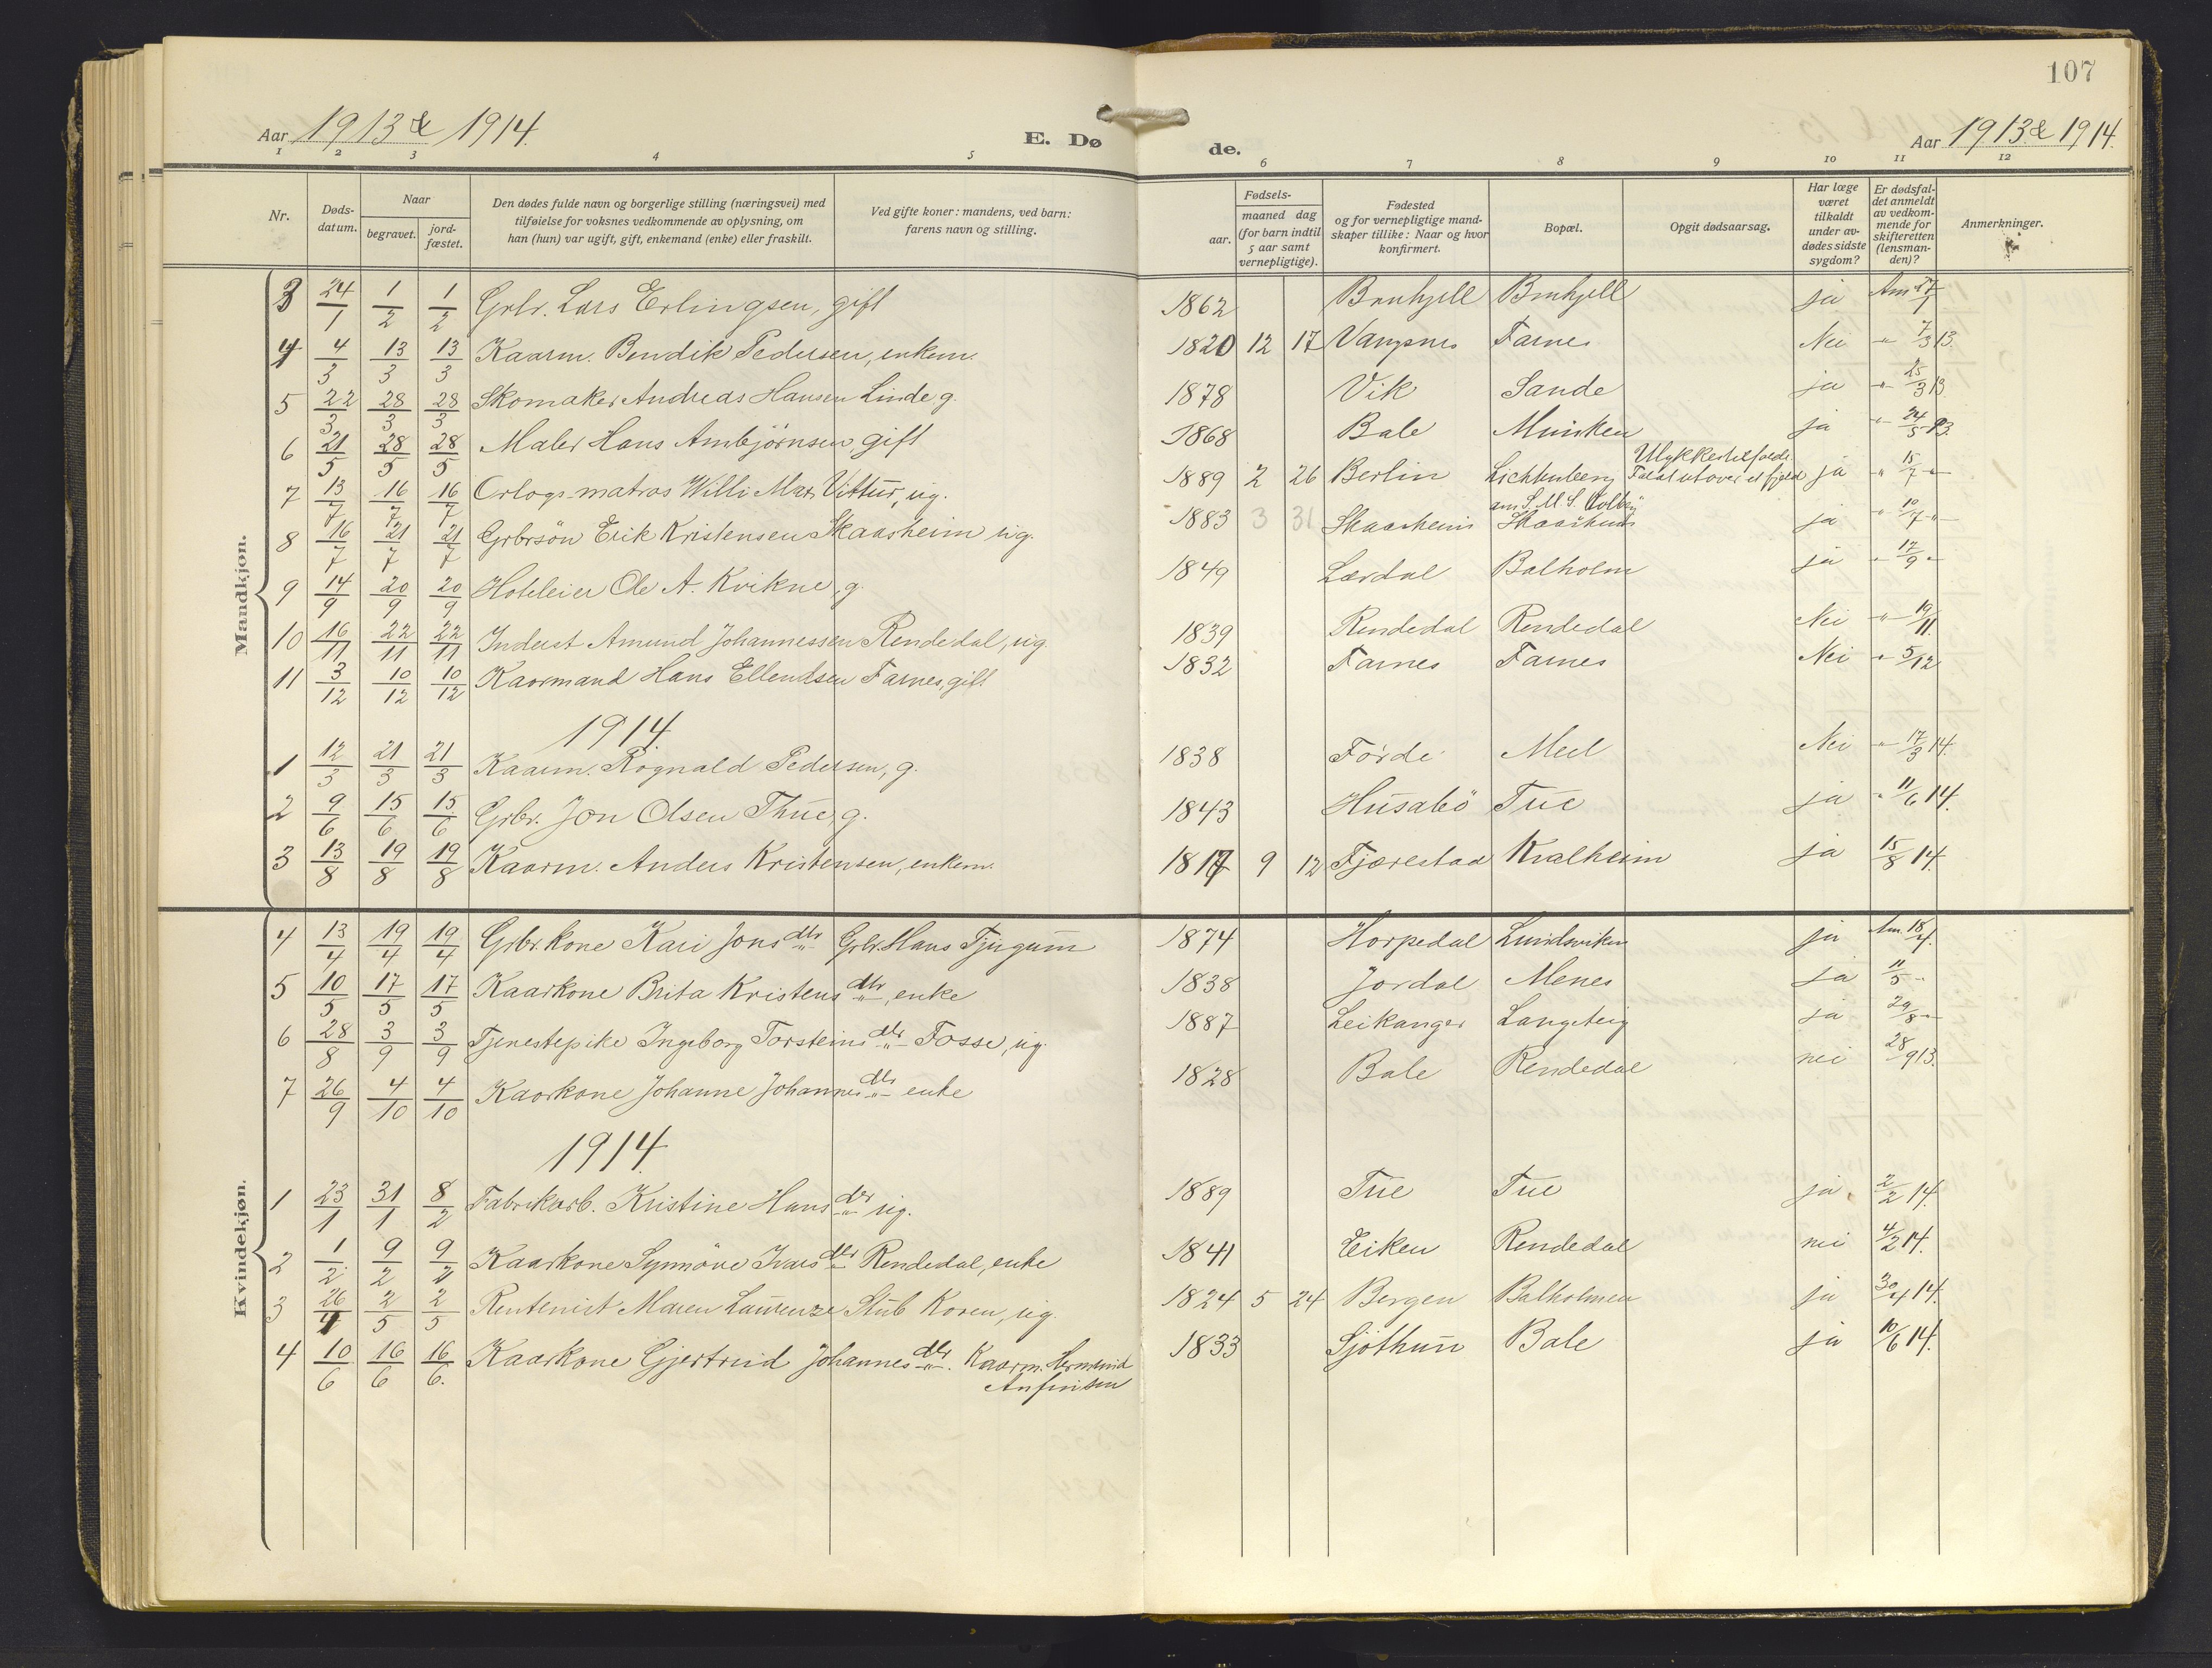 107
Aar 1913 & 1914. E. Døde. Aar 1913 & 1914.
1 2 3 4 5 6 7 8 9 10 11 12
Nr. Døds-datum. Naar begravet. jord-fæstet. Den dødes fulde navn og borgerlige stilling (næringsvei) med tilføielse for voksnes vedkommende av oplysning, om han (hun) var ugift, gift, enkemand (enke) eller fraskilt. Ved gifte koner: mandens, ved barn: farens navn og stilling. Fødsels- aar. maaned dag (for barn indtil 5 aar samt vernepligtige). Fødested og for vernepligtige mandskaper tillike: Naar og hvor konfirmert. Bopæl. Opgit dødsaarsag. Har læge været tilkaldt under avdødes sidste sygdom? Er dødsfaldet anmeldt av vedkommende for skifteretten (lensmanden)? Anmerkninger.
Mandkjøn.
3 24/1 1/2 1/2 Grbr. Lars Erlingsen, gift 1862 ja Am 27/1
4 4/3 13/3 13/3 Kaarm. Bendik Pedersen, enkem. 1820 12 17 Vangsnes Farnes Nei -"- 7/3 13.
5 22/3 28/3 28/3 Skomaker Andreas Hansen Linde g. 1878 Vik Sande ja -"- 25/3 13
6 21/5 28/5 28/5 Maler Hans Ambjørnsen, gift 1868 Bale Munken ja -"- 24/5 13.
7 13/7 16/7 16/7 Orlogs-matros Willi Max Vittur, ug. 1889 2 26 Berlin Lichtenberg Ulykkestilfælde. Faldt utover et fjeld ja -"- 15/7 -"-
8 16/7 21/7 21/7 Grbrsøn Erik Kristensen Skaasheim ug. 1883 3 31 Skaasheim Skaasheim ja -"- /7 -"-
9 14/9 20/9 20/9 Hoteleier Ole A. Kvikne, g. 1849 Lærdal Balholm ja -"- 17/9 -"-
10 16/11 22/11 22/11 Inderst Amund Johannessen Rendedal, ug. 1839 Rendedal Rendedal Nei -"- 19/11.
11 3/12 10/12 10/12 Kaarmand Hans Ellendsen Farnes, gift 1832 Farnes Farnes Nei -"- 5/12
1914
1 12/3 21/3 21/3 Kaarm. Rognald Pedersen, g. 1838 Førde Meel Nei -"- 17/3 14.
2 9/6 15/6 15/6 Grbr. Jon Olsen Thue, g. 1843 Husabø Tue ja -"- 11/6 14.
3 13/8 19/8 19/8 Kaarm. Anders Kristensen, enkem. 1817 9 12 Fjærestad Kvalheim ja 15/8 14.
Kvindekjøn.
4 13/4 19/4 19/4 Grbr.kone Kari Jonsdtr Grbr. Hans Tjugum 1874 Horpedal Lundsviken ja Am. 18/4.
5 10/5 17/5 17/5 Kaarkone Brita Kristensdtr, enke 1838 Jordal Menes ja 11/5 -"-
6 28/8 3/9 3/9 Tjenestepike Ingeborg Torsteinsdtr Fosse, ug. 1887 Leikanger Langeteig ja 29/8 -"-
7 26/9 4/10 4/10 Kaarkone Johanne Johannesdtr enke 1828 Bale Rendedal nei 28/9 13.
1914.
1 23/1 31/1 8/2 Fabrikarb. Kristine Hansdtr ug. 1889 Tue Tue ja. 2/2 14.
2 1/2 9/2 9/2 Kaarkone Synnöve Ivarsdtr Rendedal, enke 1841 Eiken Rendedal nei 4/2 14.
3 26/4 2/5 2/5 Rentenist Maren Laurenze Stub Koren, ug. 1824 5 24 Bergen Balholmen ja 30/4 14.
4 10/6 16/6 16/6. Kaarkone Gjertrud Johannesdtr. Kaarm. Hermund Anfinsen 1833 Sjøthun Bale ja 10/6 14.